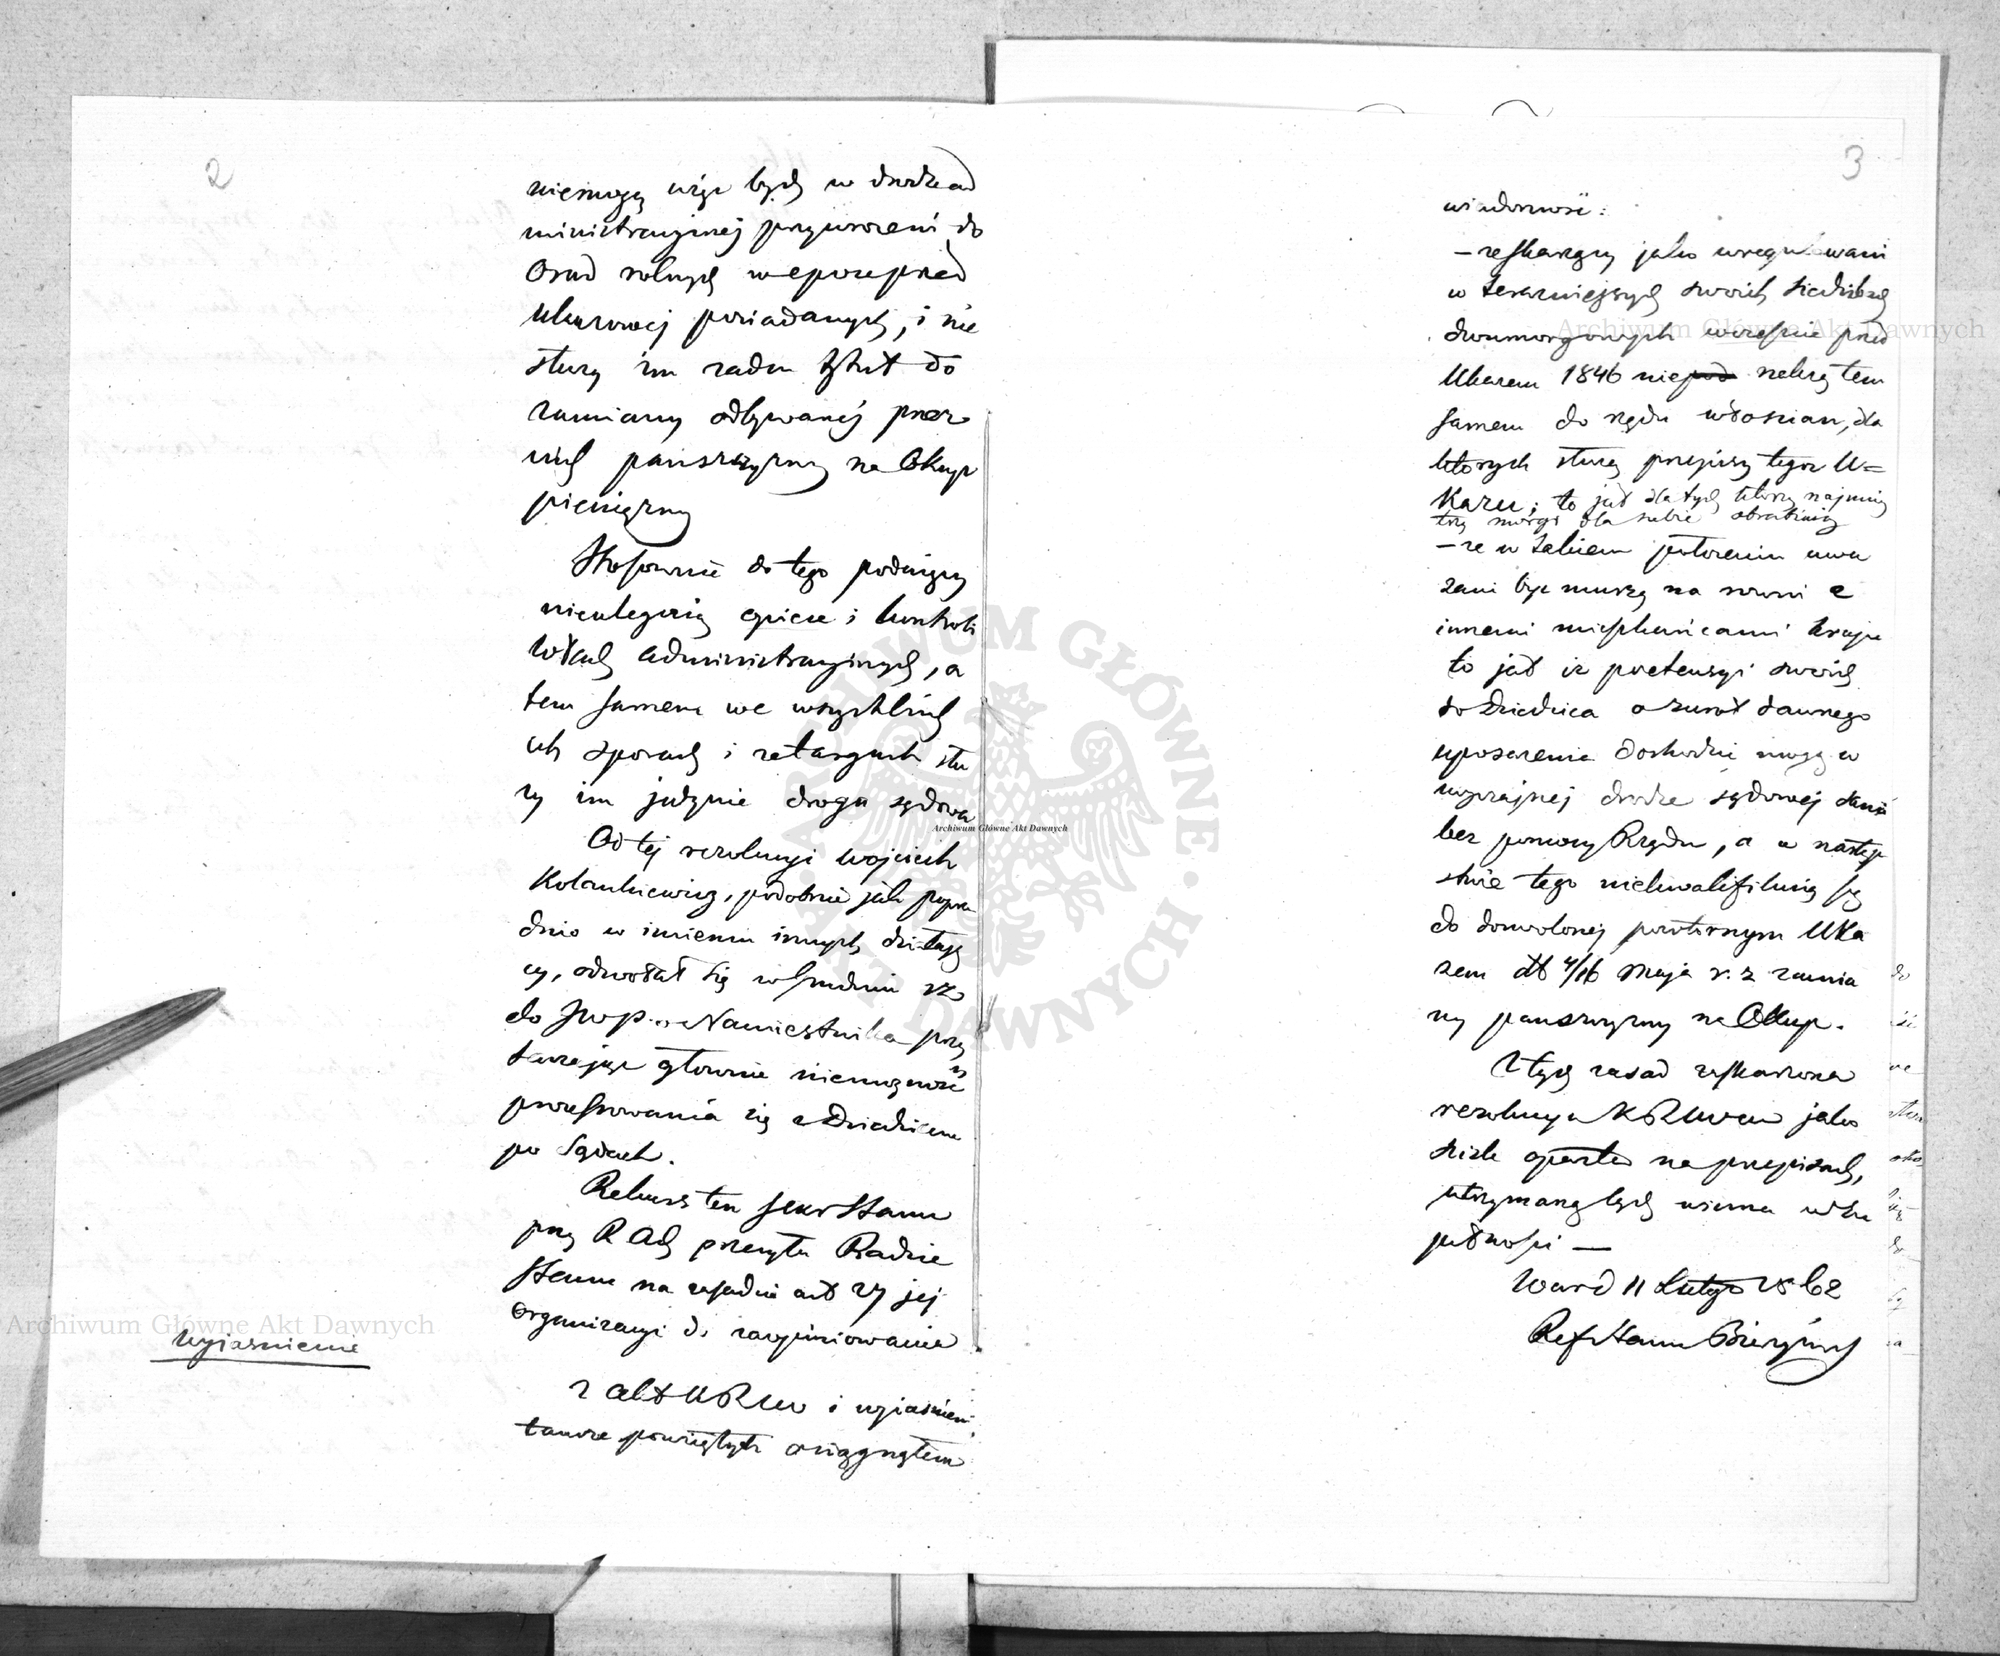 2
niemogą więc być w drodze ad
ministracyjnej przywróceni do
Osad rolnych w epoce przed
Ukazowej posiadanych, i nie
służy im żaden tytuł do
zamiany odbywanej przez
nich pańszczyzny na Okup
pieniężny
Stosownie do tego podnięty
nieulegają opiece i kontroli
Władz administracyjnych, a
tem samem we wszystkich
ich sporach i zatargach słu
ży im jedynie droga sądowa
Od tej rezolucyi Wojciech
Kolankiewicz, podobnie jak poprze
dnio w imieniu innych działają
cy, odwołał się w Grudniu rz
do JWP. Namiestnika przy
taczając głównie niemożność
procesowania się z Dziedzicem
po Sądach.
Rekurs ten Sekr Stanu
przy RAdm przesyła Radzie
Stanu na zasadzie art 27 jej
Organizacyi do zaopiniowania
Wyjaśnienie
z akt KRSW i wyjaśnień
tamże powziętych osiągnąłem
3
wiadomość:
– że skarżący jako uregulowani
w teraźniejszych swoich siedzibach
dwumorgowych wcześnie przed
Ukazem 1846 nie należą tem
samem do rzędu włościan, dla
których służą przepisy tegoż U=
Kazu; to jest dla tych którzy najmniej
trzy morgi dla siebie obrabiają
– że w takiem położeniu uwa
żani być muszą na równi z
innemi mieszkańcami kraju
to jest iż pretensyi swoich
do Dziedzica o zwrot dawnego
uposażenia dochodzić mogą w
zwyczajnej drodze sądowej
bez pomocy Rządu, a w następ
stwie tego niekwalifikują się
do dozwolonej powtórnym Uka
zem dtt 4/16 Maja r. z zamia
ny pańszczyzny na Okup.
Z tych zasad zaskarżona
rezolucya KRSWew jako
ściśle oparta na przepisach,
utrzymaną być winna w zu
pełności —
Warsz 11 Lutego 1862
Ref Stanu